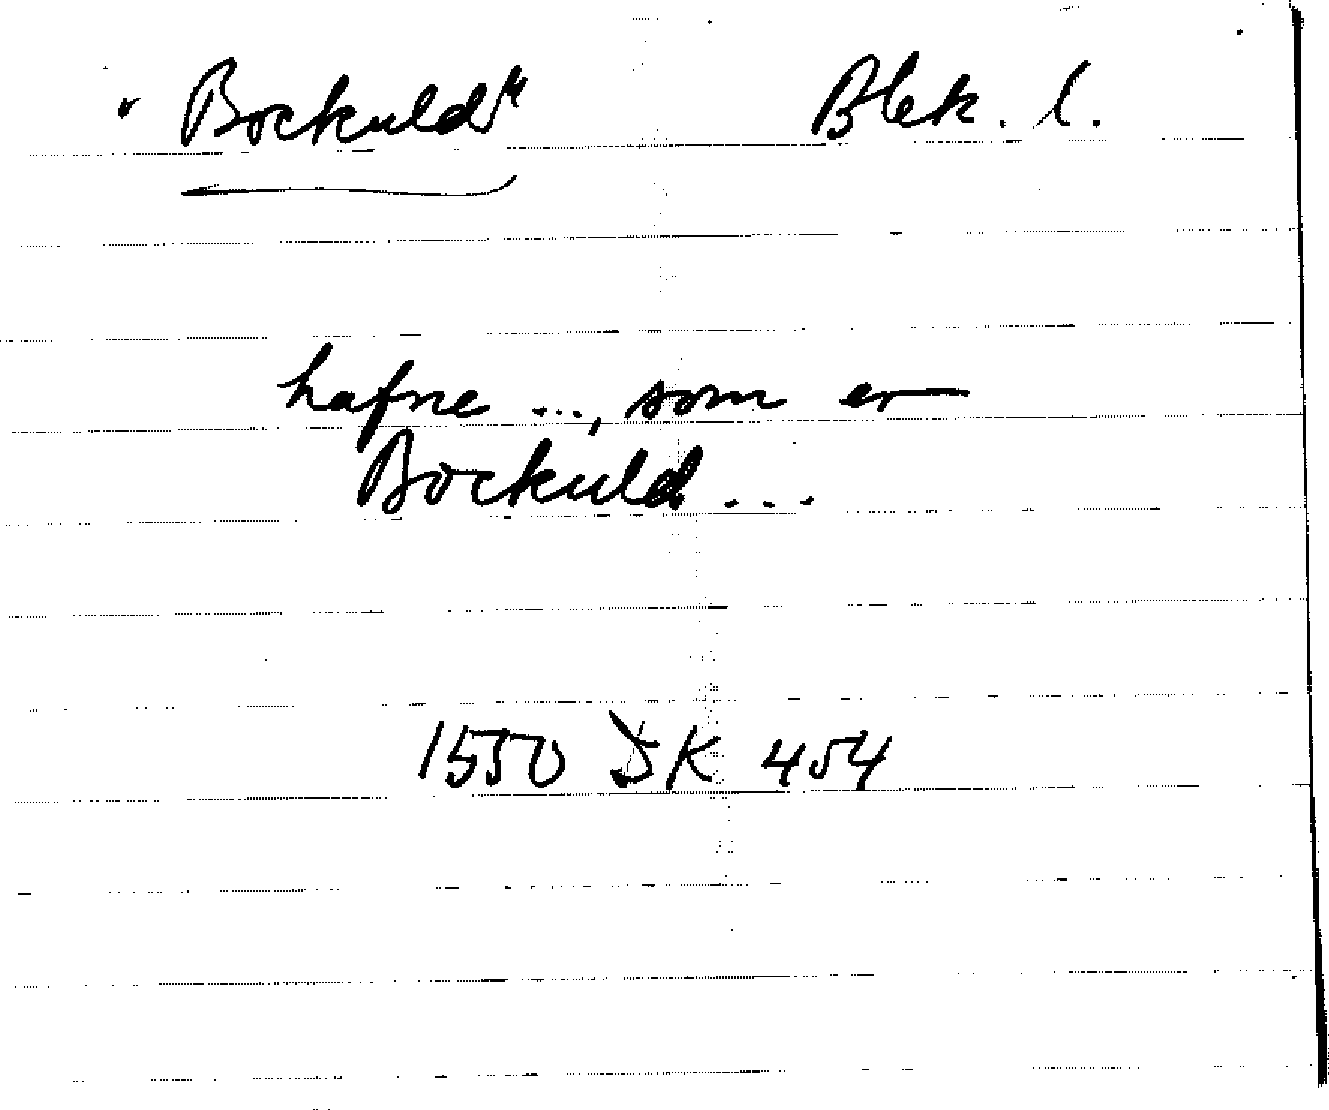 "Bockuld" Blek. l.
hafne ..., som er
Bockuld ...
1550 DK 454